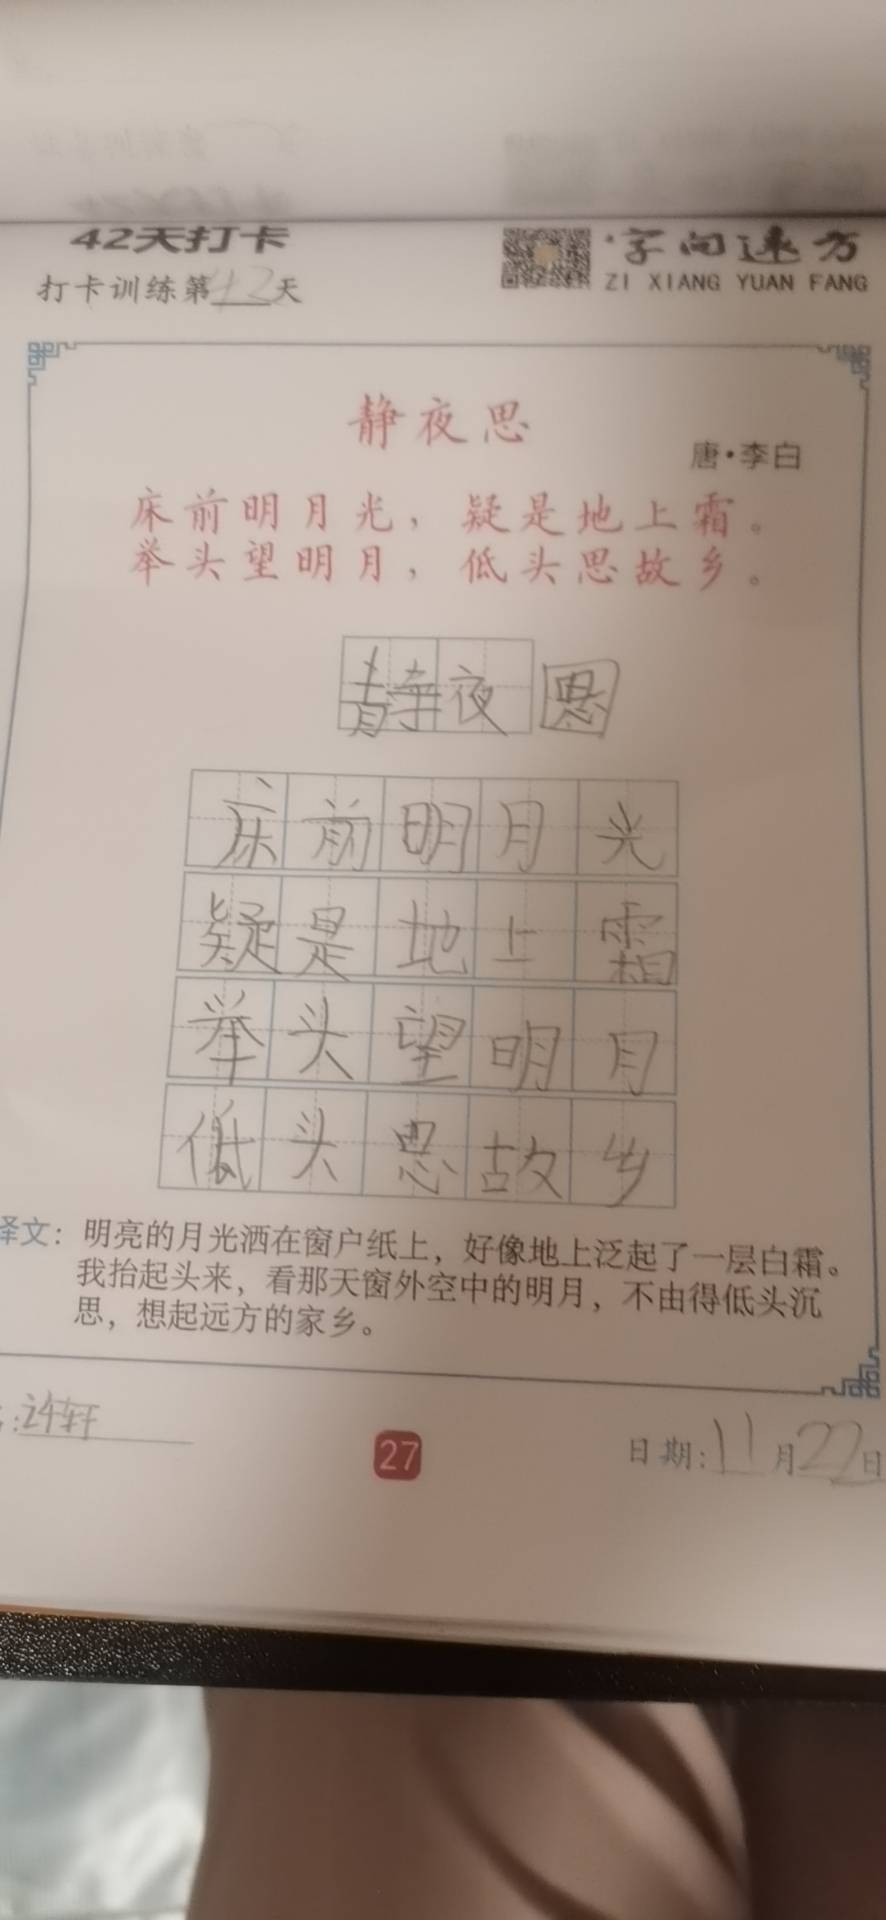 42天打卡
字向远方
打卡训练第42天
ZI XIANG YUAN FANG
静夜思
唐·李白
床前明月光，疑是地上霜。
举头望明月，低头思故乡。
静夜思
床前明月光
疑是地上霜
举头望明月
低头思故乡
译文：明亮的月光洒在窗户纸上，好像地上泛起了一层白霜。
我抬起头来，看那天窗外空中的明月，不由得低头沉
思，想起远方的家乡。
轩
27
日期：11月22日